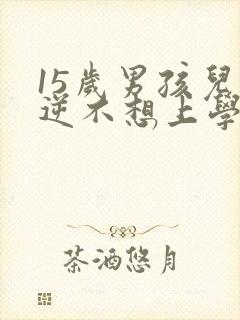 15歲男孩兒
逆不想上學
茶酒悠月